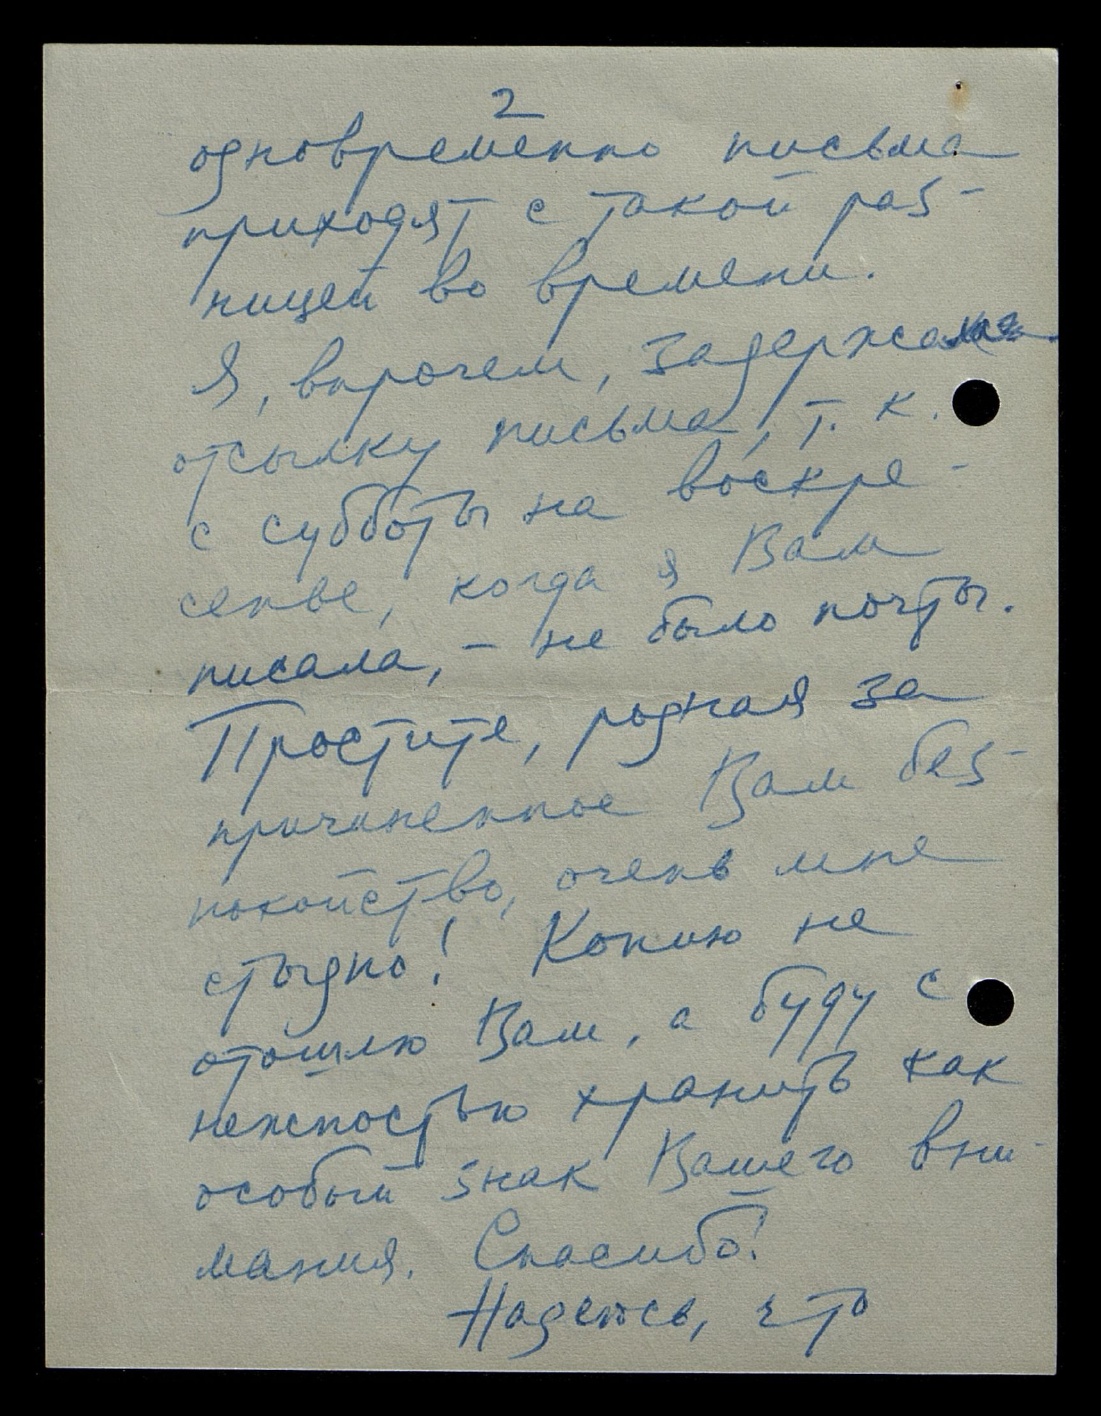 2
одновременно письма
приходят с такой раз-
ницей во времени.
Я, впрочем, задержала
отсылку письма, т. к.
с субботы на воскре-
сенье, когда я Вам
писала, - не было почты.
Простите, родная за
причиненное Вам без-
покойство, очень мне
стыдно! Копию не
отошлю Вам, а буду с
нежностью хранить как
особый знак Вашего вни-
мания. Спасибо!
Надеюсь, что